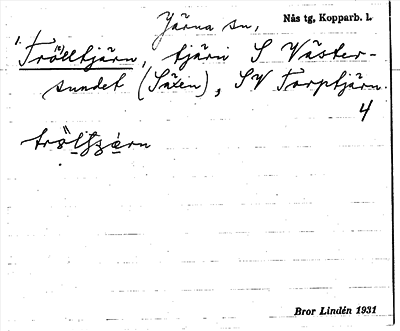 Järna sn,
Nås tg, Kopparb. l.
1.
Trölltjärn, tjärn S Väster-
sundet (Säxen), SV Torptjärn.
4
Bror Lindén 1931